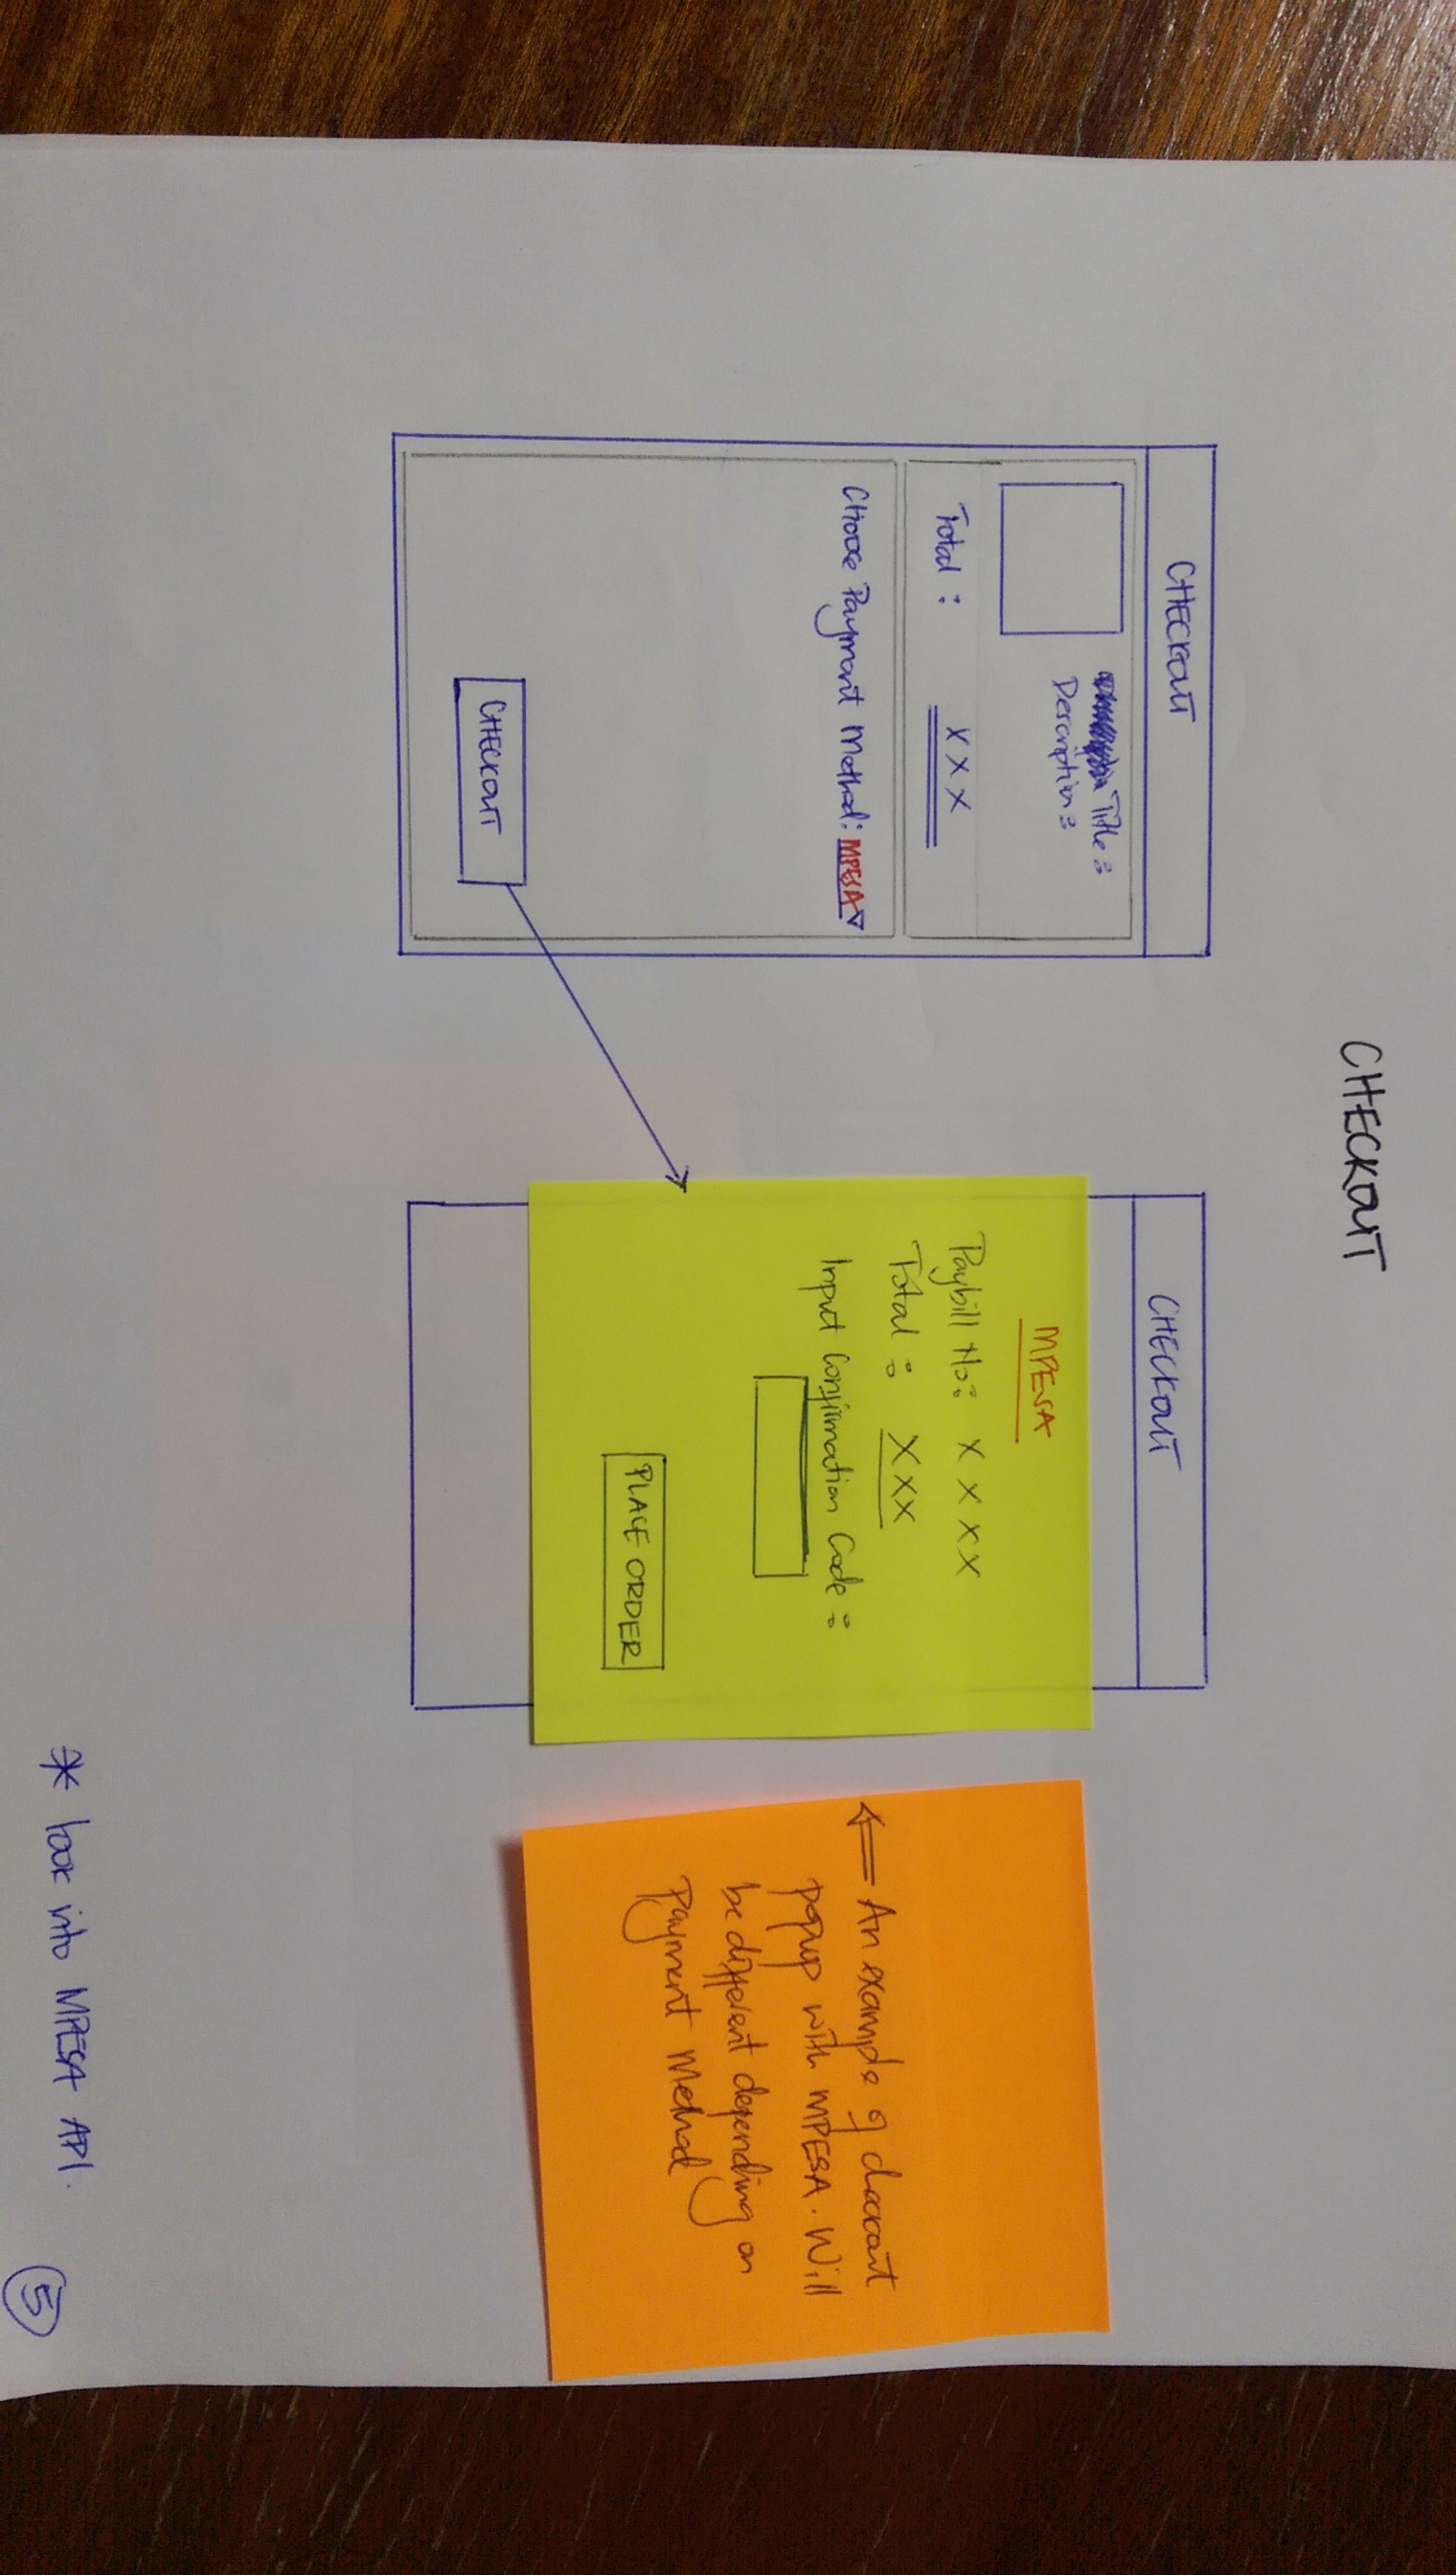 CHECKOUT
CHECKOUT
Title :
Description :
Total : XXX
Choose Payment Method: MPESA
CHECKOUT
CHECKOUT
MPESA
Paybill No: X X X X
Total : XXX
Input Confirmation Code :
PLACE ORDER
An example of checkout
popup with MPESA. Will
be different depending on
Payment Method
* look into MPESA API.
5